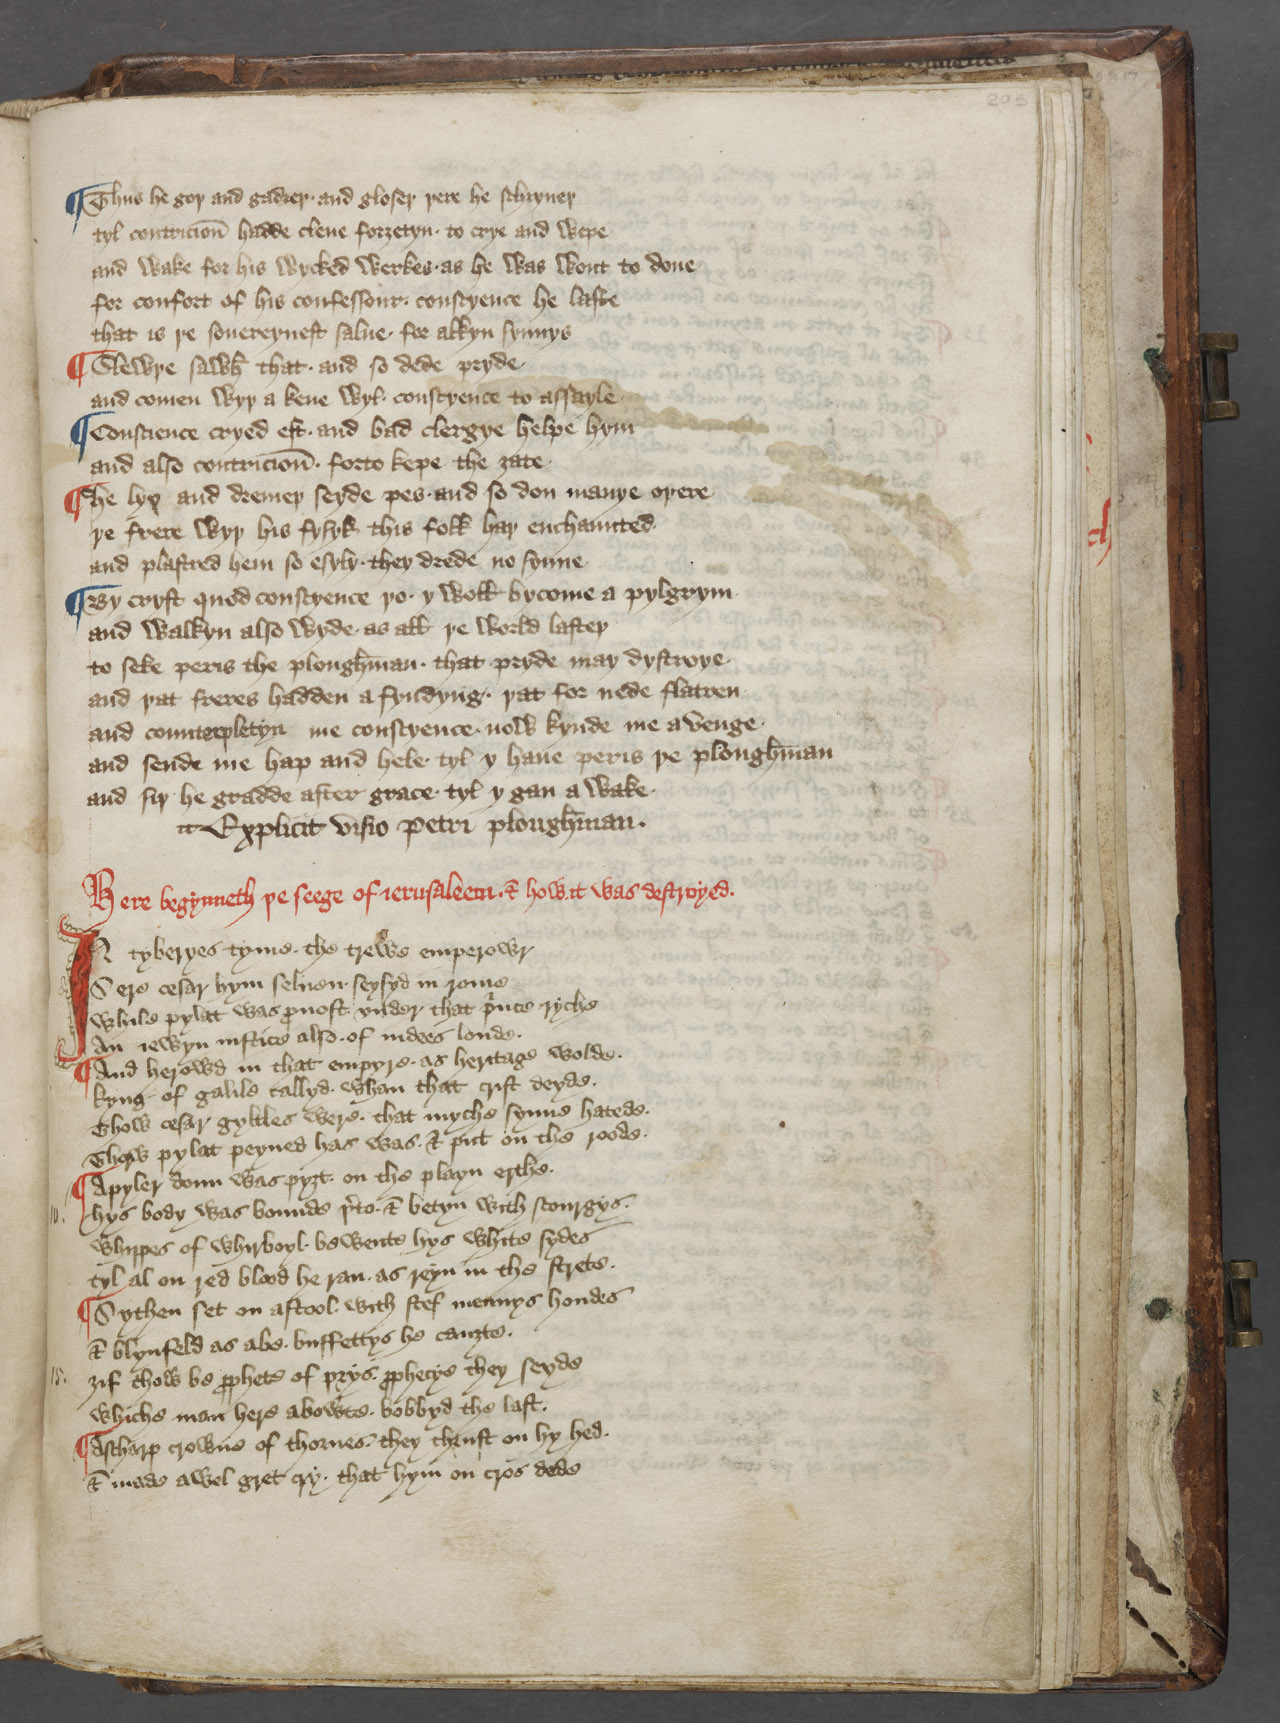 205
¶ Thus he goþ and gadreþ · and gloseþ þere he schryueþ
tyl contricion̄ hadde clene forȝetyn · to crye and wepe
and wake for his wycked werkes · as he was wont to done
for confort of his confessour · conscyence he lafte
that is þe souereynest salue · for alkyn synnys
¶ Slewþe sawh that · and so dede pryde
and comen wyþ a kene wyl · conscyence to assayle
¶ Conscience cryed eft · and bad clergye helpe hym
and also contricion̄ · forto kepe the ȝate
¶ he lyþ and dremeþ seyde pes · and so don manye oþere
þe frere wyþ his fysyk this folk haþ enchaunted
and plastred hem so esyly · they drede no synne
¶ By cryst quod conscyence þo · y woll bycome a pylgrym
and walkyn also wyde · as all þe world lasteþ
to seke peris the ploughman · that pryde may dystroye
and þat freres hadden a fyndyng · þat for nede flatren
and counterpletyn me conscyence · now kynde me avenge
and sende me hap and hele · tyl y haue peris þe ploughman
and siþ he gradde after grace · tyl y gan a wake
Explicit visio Petri ploughman ·
Here begynneth þe seege of ierusaleem · & how it was destroyed ·
IN tyberyes tyme · the trewe emperowr
Sere cesar hym seluen · seysyd in rome
while pylat was ꝓuost · vnder that pᵣince ryche
An iewyn iustice also · of iudees londe ·
¶ And herowd in that empyre · as heritage wolde ·
kyng of galile callyd · whan that crist deyde ·
Thow cesar gyltles were · that myche synne hatede ·
Thorw pylat peyned has was · & put on the roode ·
¶ Apyler doun was pyȝt · on the playn erthe ·
10 · hys body was bounde þᵉto · & betyn with scourgys ·
whippes of whirboyl · bewente hys white sydes
tyl al on red blood he ran · as reyn in the strete ·
¶ Sythen set on astool · with stef mennys hondes
& blynfeld as abe · buffettys he cauȝte ·
15 · ȝif thow be ꝓphete of prys · ꝓphecye they seyde
whiche man here abowte · bobbyd the last ·
¶ Ascharp crowne of thornes · they thrust on hy hed ·
& made awel gret cry · that hym on cros dede